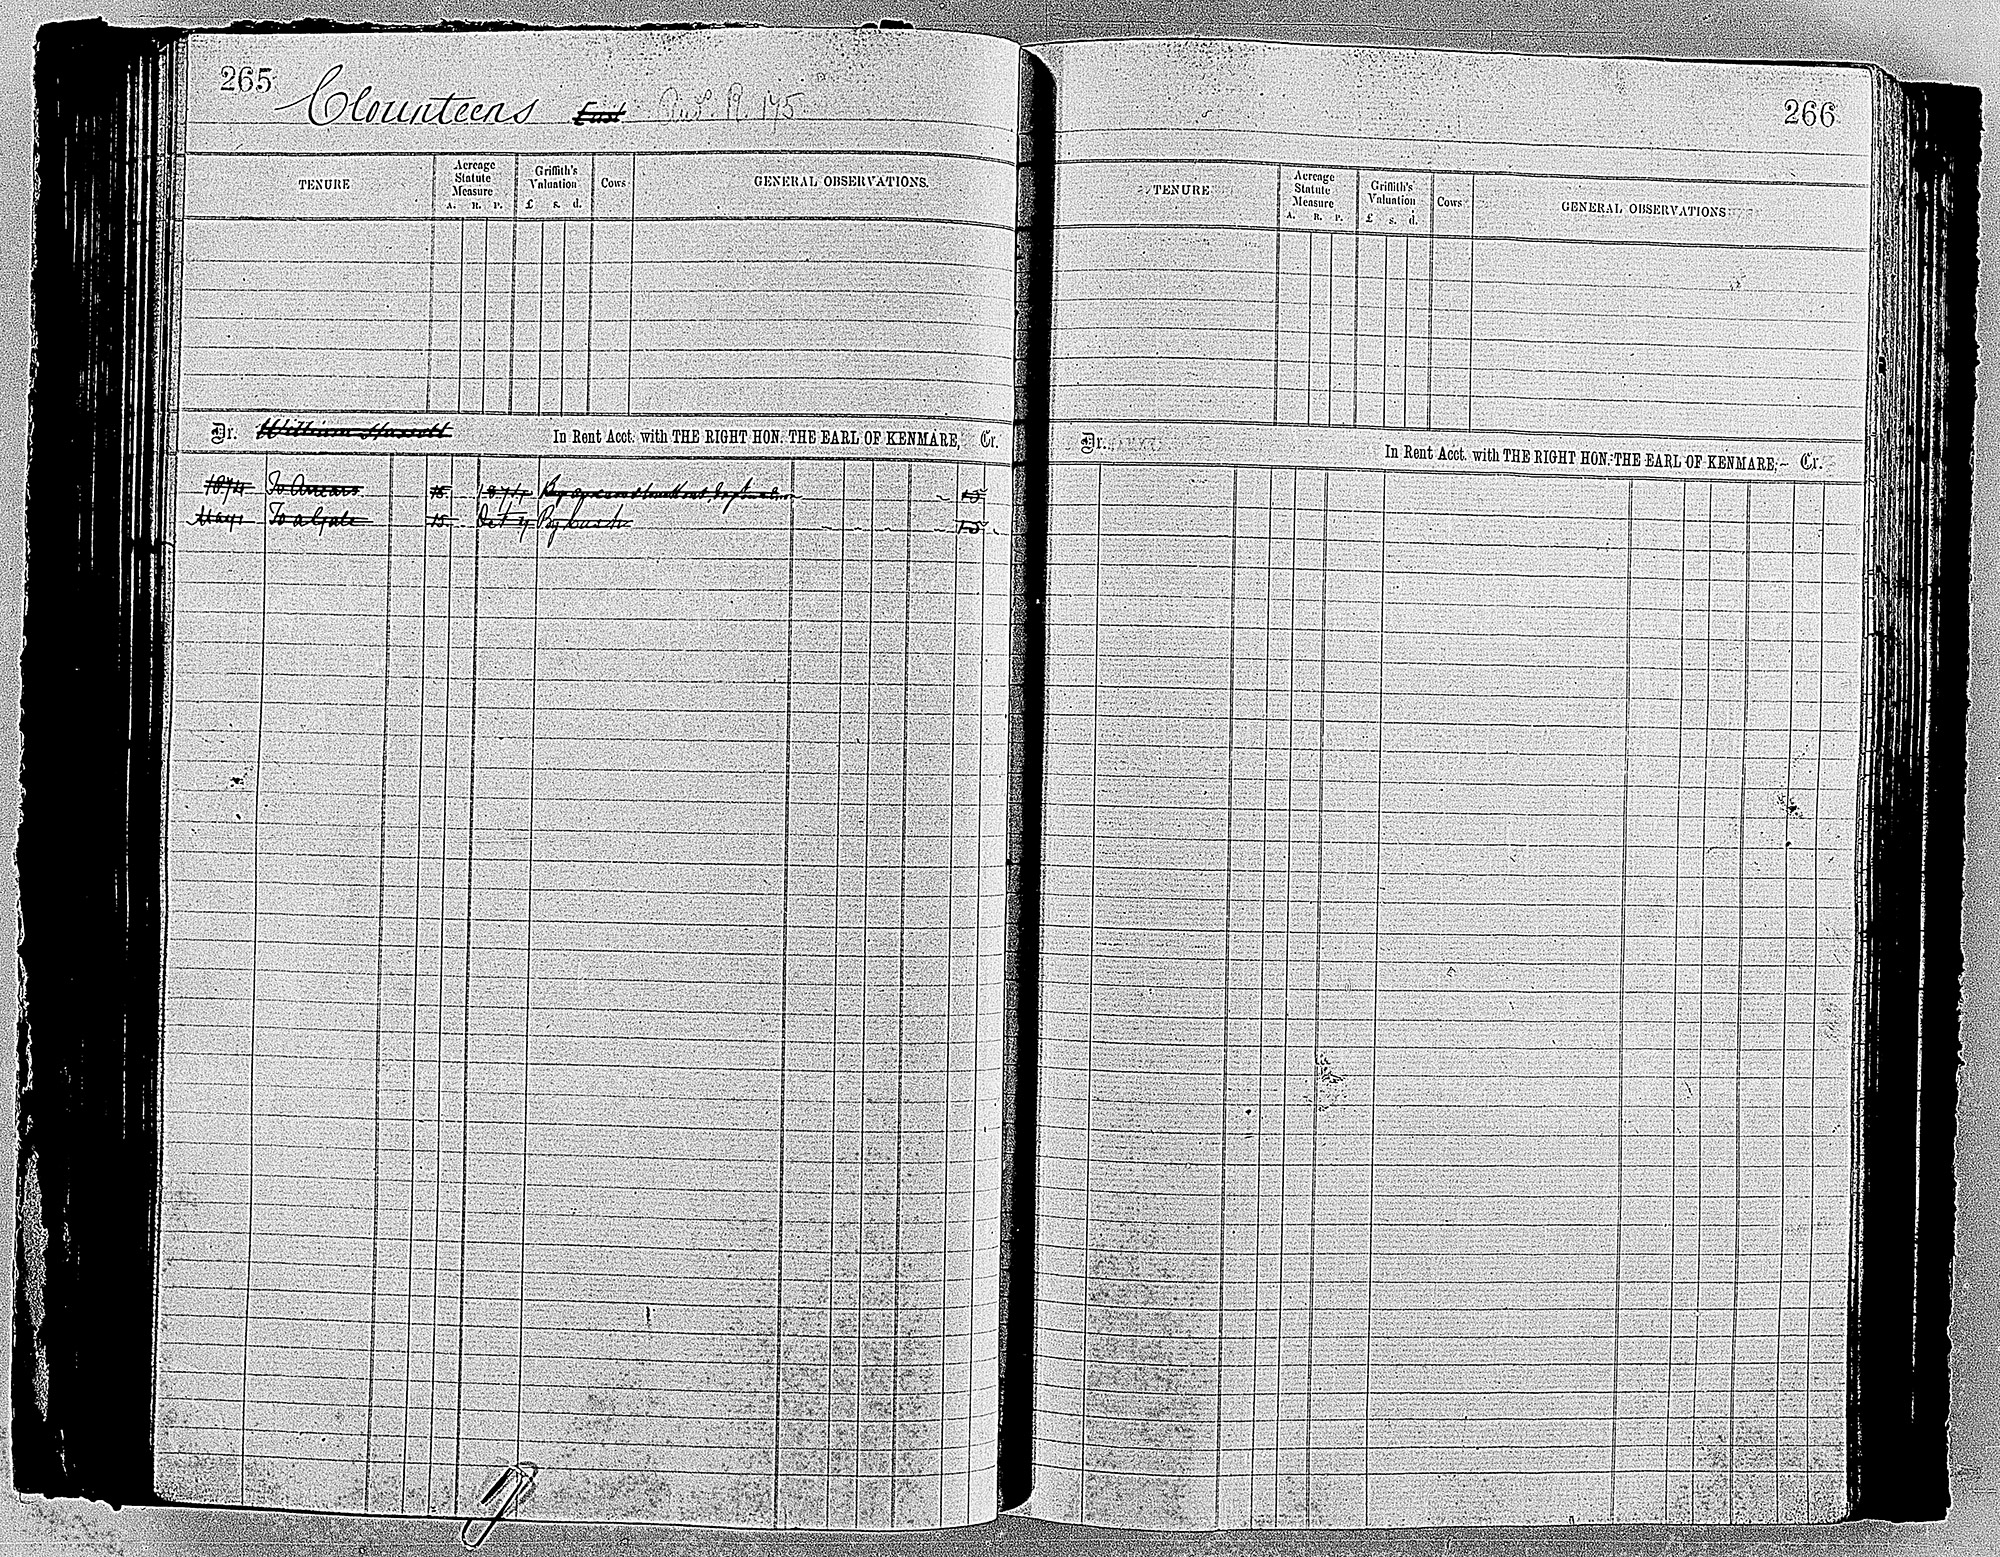 265
Clounteens East
TENURE
Acreage Statute Measure
A. R. P.
Griffith's Valuation
£ s. d.
Cows
GENERAL OBSERVATIONS.
Dr. William Hassett In Rent Acct. with THE RIGHT HON. THE EARL OF KENMARE, Cr.
1874 To Arrears 15 1874 By
May 1 To a Gale 15 Oct 7 By Cash 15
266
TENURE
Acreage Statute Measure
A. R. P.
Griffith's Valuation
£ s. d.
Cows
GENERAL OBSERVATIONS
Dr. In Rent Acct. with THE RIGHT HON. THE EARL OF KENMARE, Cr.